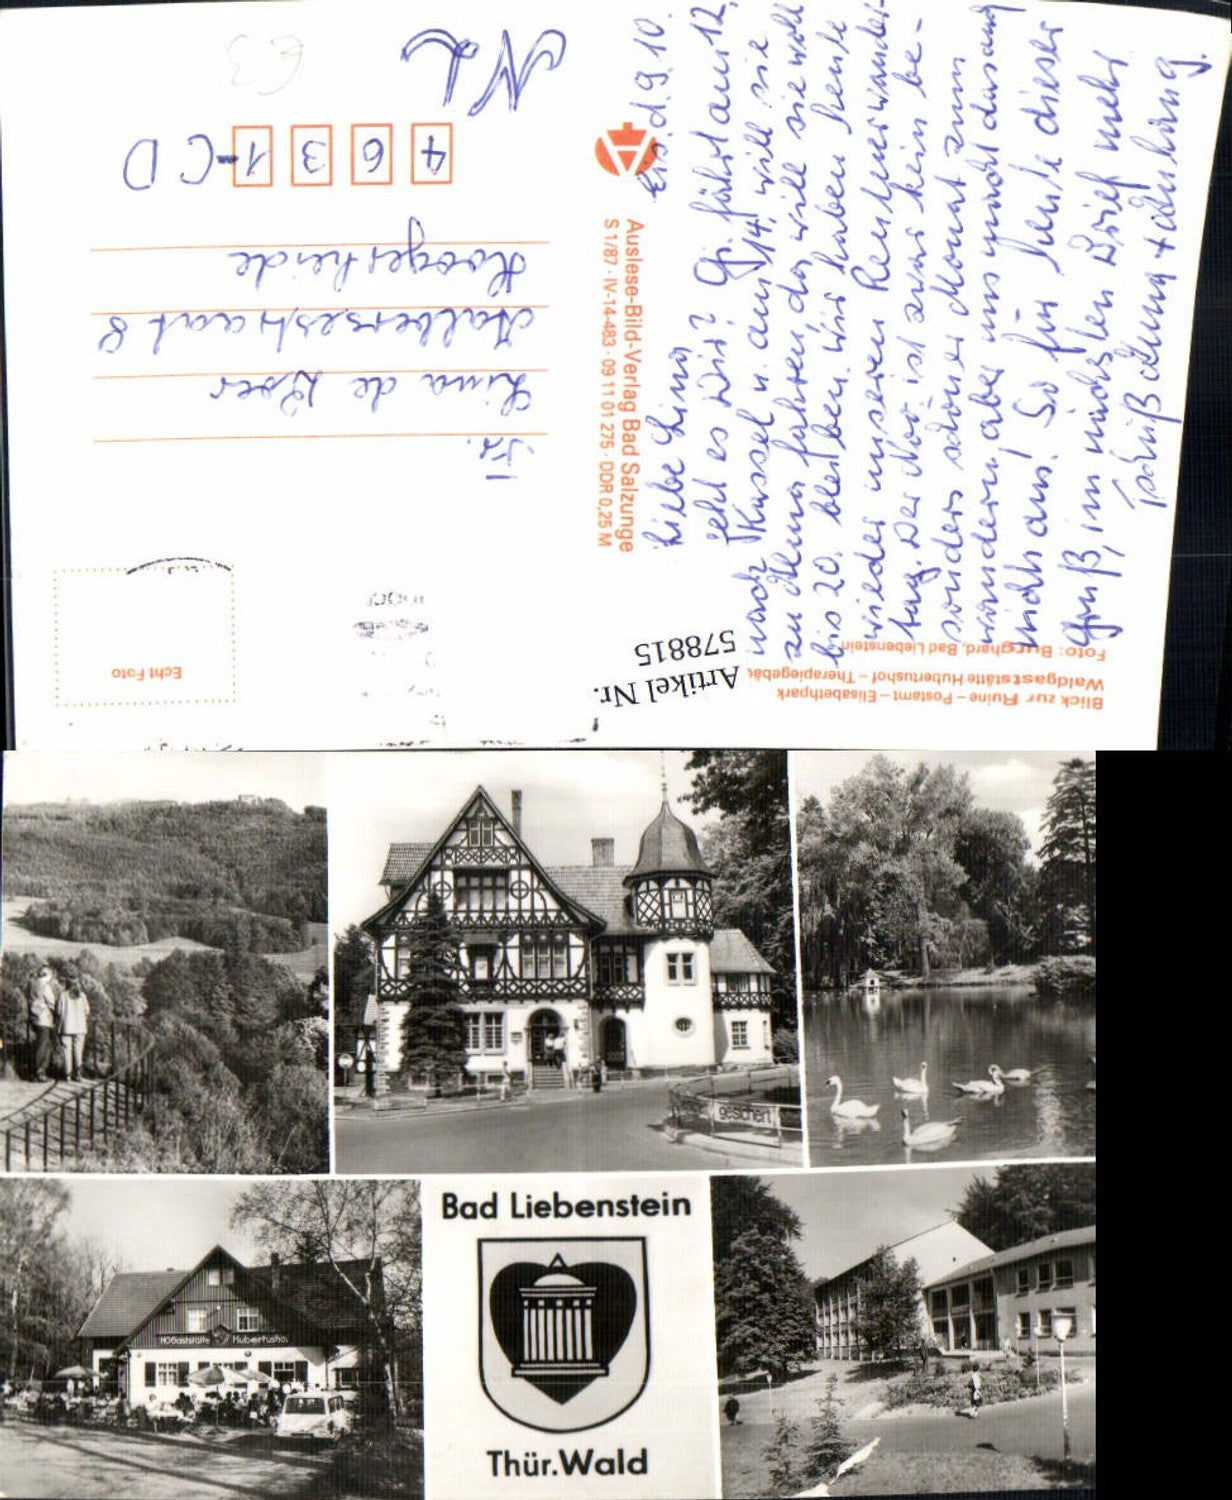 Eis. d. 9. 10.
Liebe Lina
geht es Dir? Gi. fährt am 12,
nach Kassel u. am 14, will sie
zu Anna fahren da will sie wohl
bis 20. bleiben. Wir haben heute
wieder unseren Rentnerwander-
tag. Der Nov. ist zwar kein be-
sonders schöner Monat zum
wandern, aber uns macht das auch
nichts aus. So für heute dieser
Gruß, im nächsten Brief mehr
Gruß Anna +
Auslese-Bild-Verlag Bad Salzunge
S 1/87 · IV-14-483 · 09 11 01 275 · DDR 0,25 M
Blick zur Ruine – Postamt – Elisabethpark
Waldgaststätte Hubertushof – Therapiegebäu
Foto: Burghard, Bad Liebenstein
Artikel Nr.
578815
Echt Foto
Fr.
Lina de Boer
8
Hoogerheide
4631-CD
NL
€3
gesichert
HOGaststätte Hubertushof
Bad Liebenstein
Thür.Wald